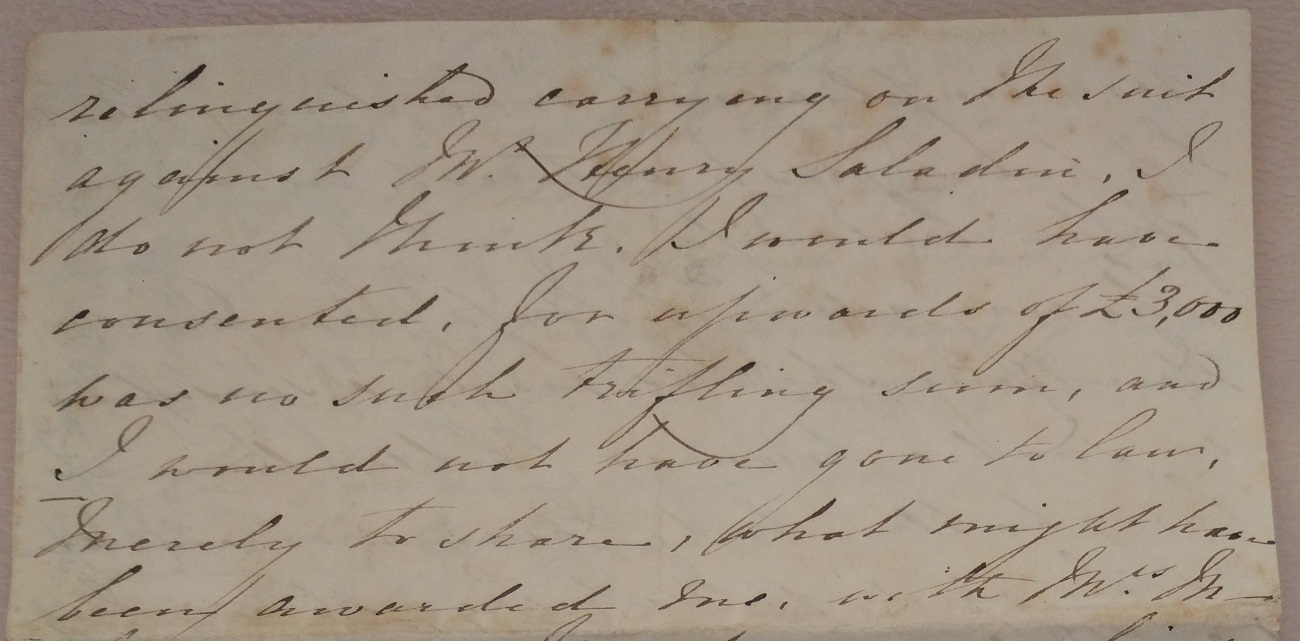 relinquished carrying on the suit
against Mr. Henry Saladin, I
do not think. I would have
consented, for upwards of £3,000
was no such trifling sum, and
I would not have gone to law,
merely to share, what might have
been awarded me, with Mrs. M-